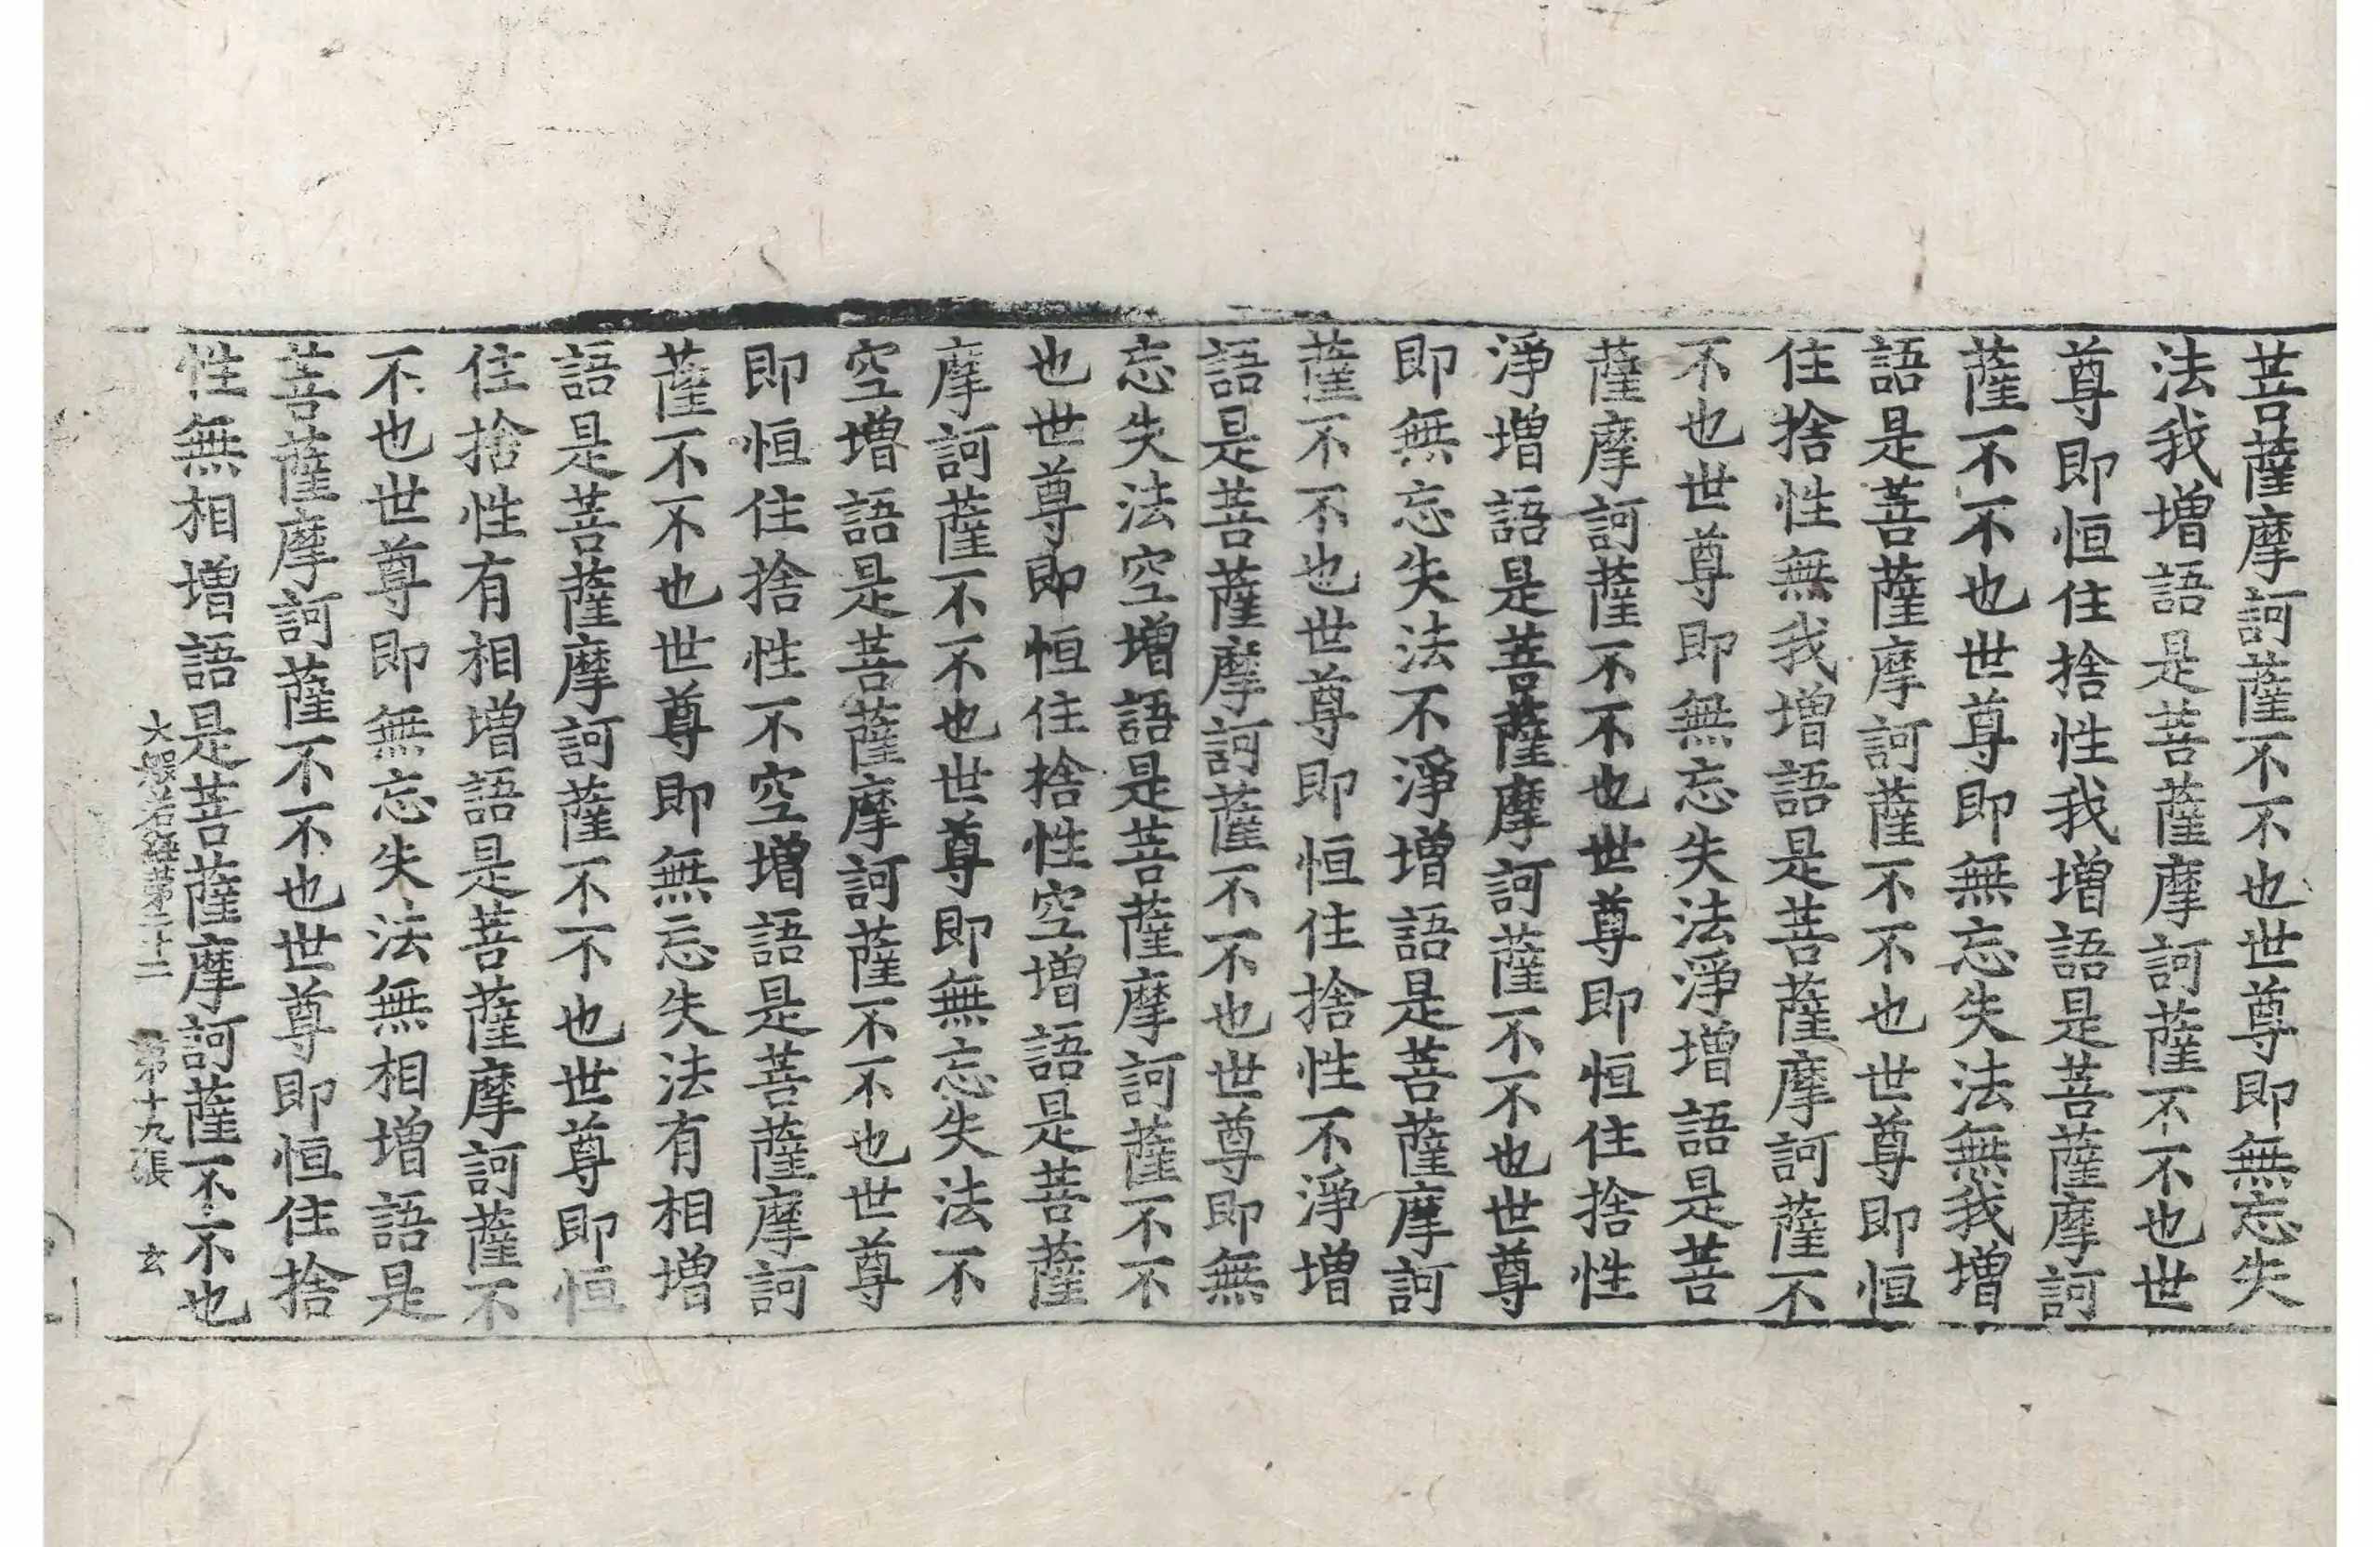 菩薩摩訶薩不不也世尊即無忘失
法我增語是菩薩摩訶薩不不也世
尊即恒住捨性我增語是菩薩摩訶
薩不不也世尊即無忘失法無我增
語是菩薩摩訶薩不不也世尊即恒
住捨性無我增語是菩薩摩訶薩不
不也世尊即無忘失法淨增語是菩
薩摩訶薩不不也世尊即恒住捨性
淨增語是菩薩摩訶薩不不也世尊
即無忘失法不淨增語是菩薩摩訶
薩不不也世尊即恒住捨性不淨增
語是菩薩摩訶薩不不也世尊即無
忘失法空增語是菩薩摩訶薩不不
也世尊即恒住捨性空增語是菩薩
摩訶薩不不也世尊即無忘失法不
空增語是菩薩摩訶薩不不也世尊
即恒住捨性不空增語是菩薩摩訶
薩不不也世尊即無忘失法有相增
語是菩薩摩訶薩不不也世尊即恒
住捨性有相增語是菩薩摩訶薩不
不也世尊即無忘失法無相增語是
菩薩摩訶薩不不也世尊即恒住捨
性無相增語是菩薩摩訶薩不不也
大般若經第三十二 第十九張 玄